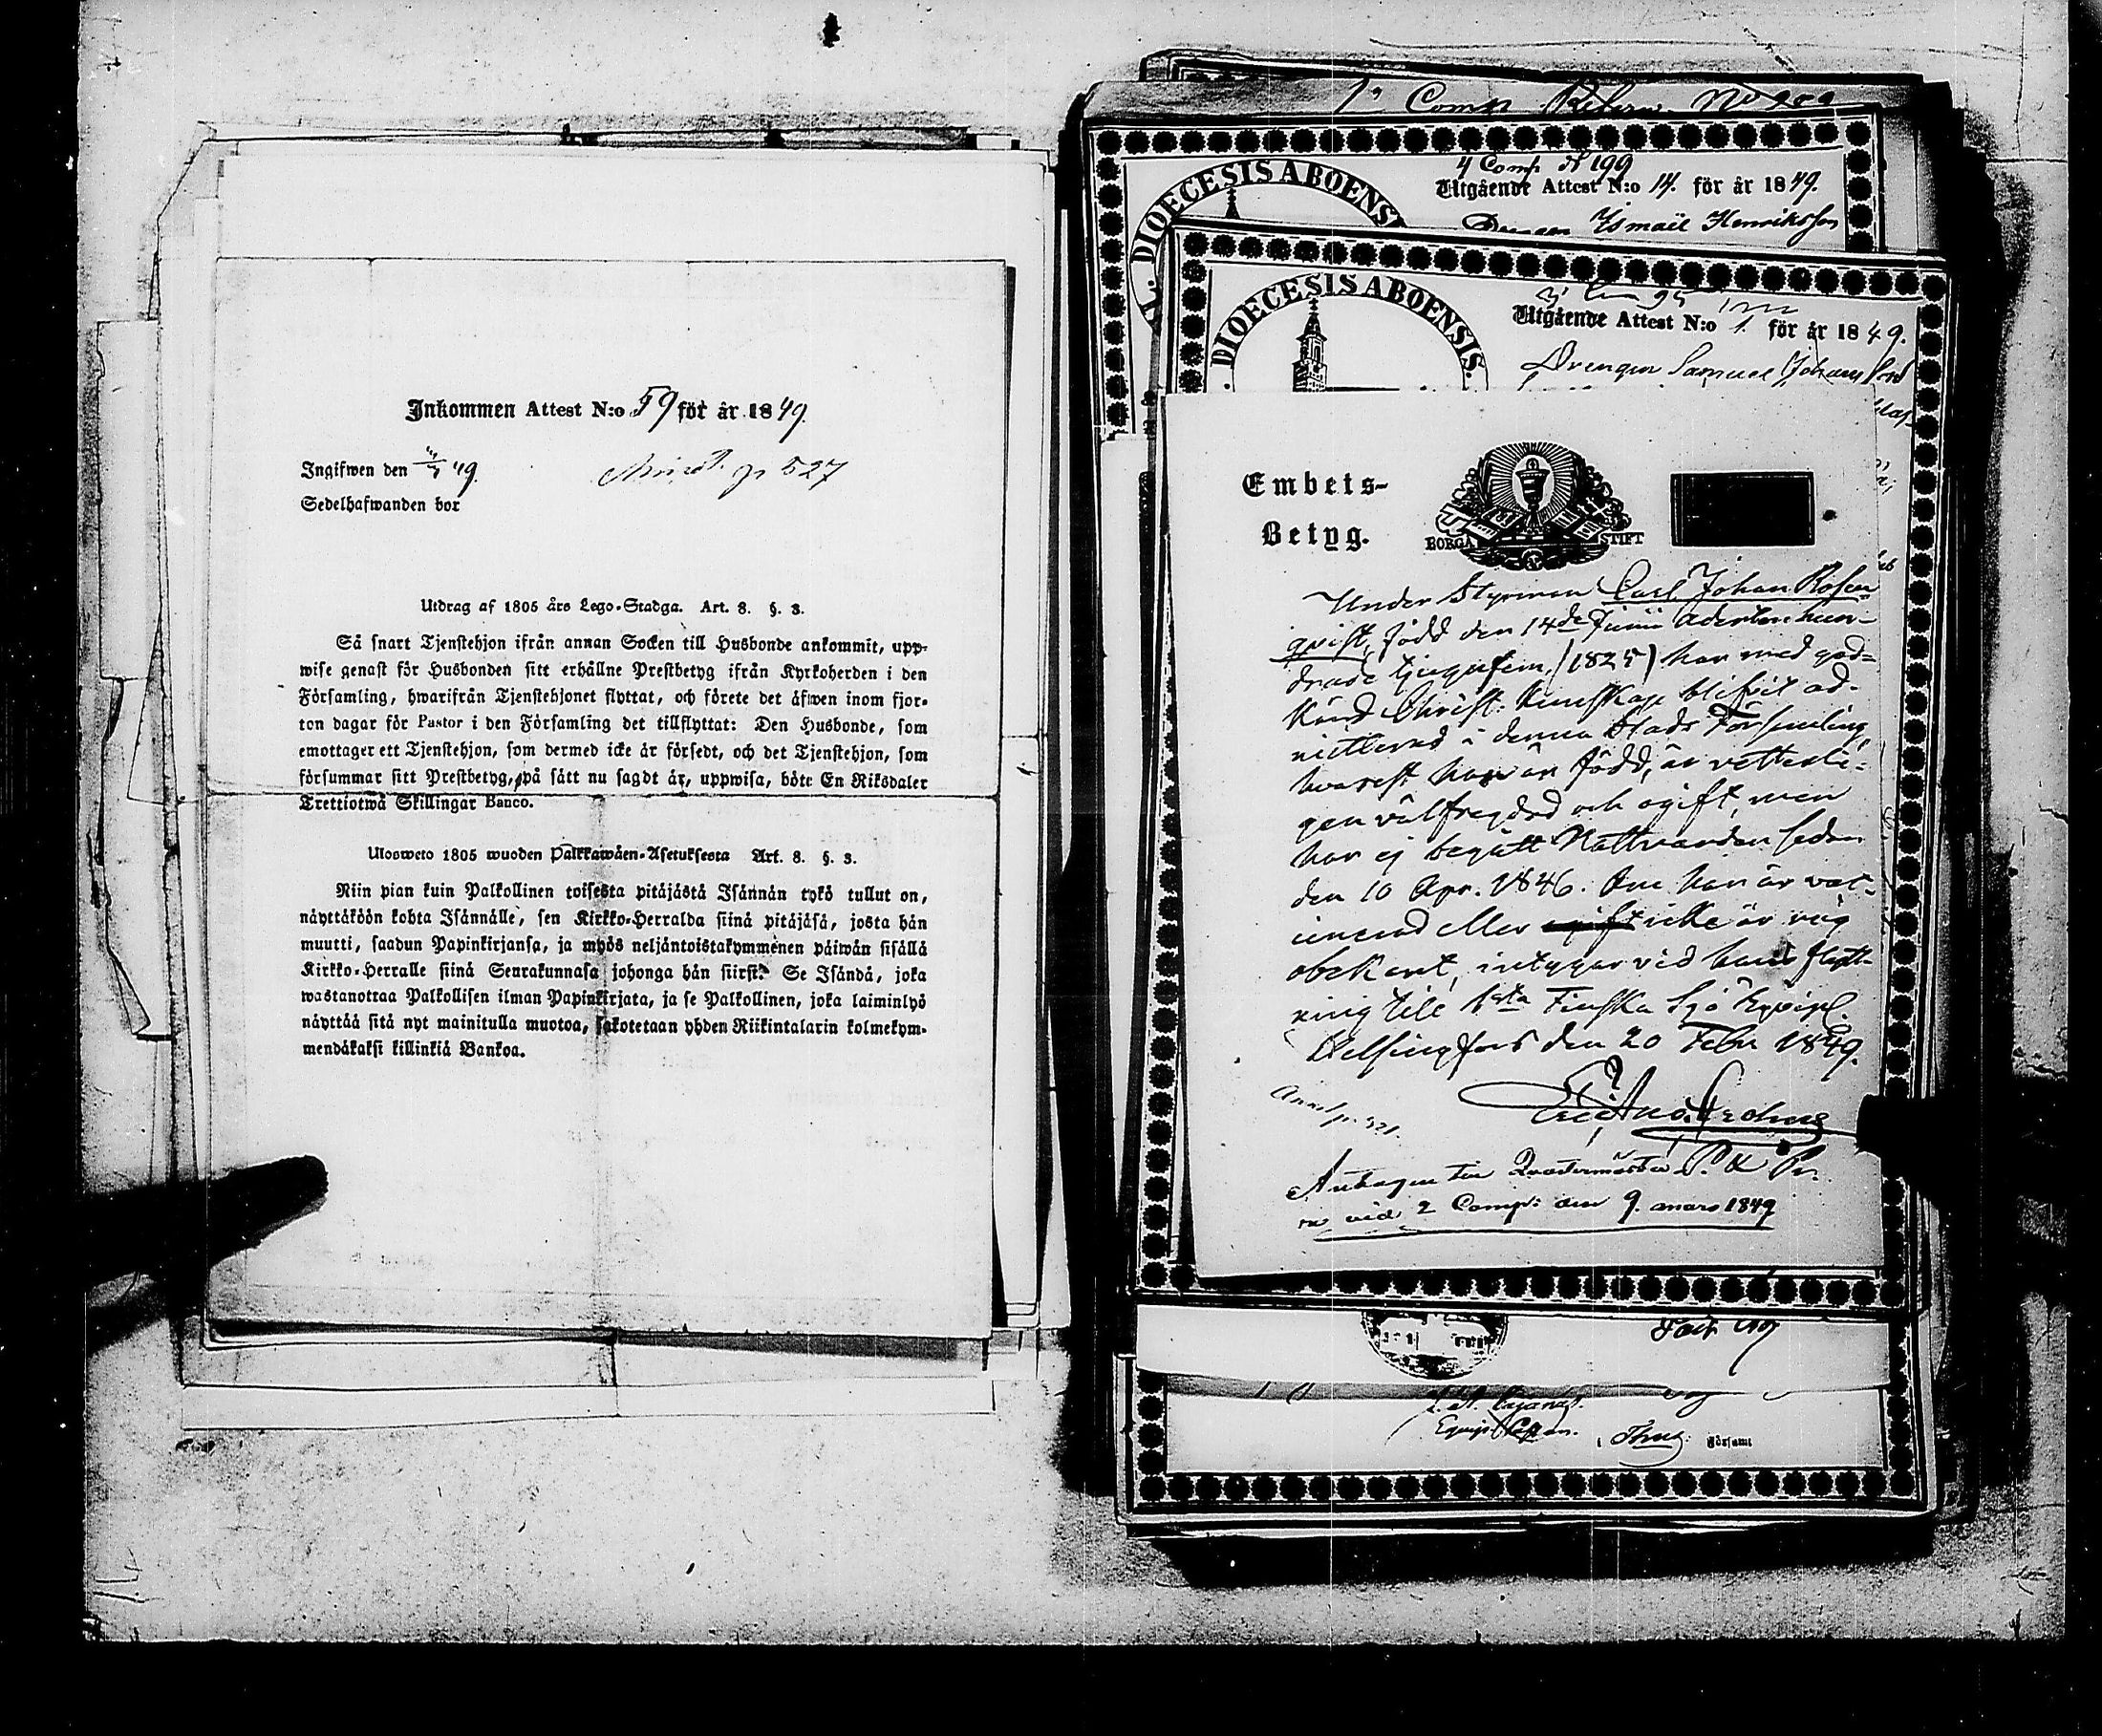 Inkommen Attest N:o 59 för år 1849.
Ingifwen den 49.
p 527
Sedelhafwanden bor
Utdrag af 1805 års Lego-Stadga. Art. 8. §. 3.
Så snart Tjenstehjon ifrån annan Socken till Husbonde ankommit, upp-
wise genast för Husbonden sitt erhållne Prestbetyg ifrån Kyrkoherden i den
Församling, hwarifrån Tjenstehjonet flyttat, och förete det äfwen inom fjor-
ton dagar för Pastor i den Församling det tillflyttat: Den Husbonde, som
emottager ett Tjenstehjon, som dermed icke är försedt, och det Tjenstehjon, som
försummar sitt Prestbetyg, på sätt nu sagdt är, uppwisa, böte En Riksdaler
Trettiotwå Skillingar Banco.
Ulosweto 1805 wuoden Palkkawäen-Asetuksesta Art. 8. §. 3.
Niin pian kuin Palkollinen toisesta pitäjästä Isännän tykö tullut on,
näyttäköön kohta Isännälle, sen Kirkko-Herralda siinä pitäjäsä, josta hän
muutti, saadun Papinkirjansa, ja myös neljäntoistakymmenen päiwän sisällä
Kirkko-Herralle siinä Seurakunnasa johonga hän siirsi. Se Isändä, joka
wastanottaa Palkollisen ilman Papinkirjata, ja se Palkollinen, joka laiminlyö
näyttää sitä nyt mainitulla muotoa, sakotetaan yhden Riikintalarin kolmekym-
mendäkaksi killinkiä Bankoa.
1a Comp
4 Comp. N 199
Utgående Attest N:o 14. för år 1849.
DIOECESIS ABOENSI
Drengen Ismaël Henriksson
DIOECESIS ABOENSIS.
Utgående Attest N:o 1. för år 1849.
Drengen Samuel Johansson
Embets-
Betyg.
BORGÅ STIFT
Under Styrman Carl Johan Rosen-
qvist, född den 14de Junii Adertonhun-
drade tjugufem, (1825) har med god-
känd Christ. Kunskap blifvit ad-
mitterad i denna Stads Församling,
hvarest han är född, är vetterli-
gen välfregdad och ogift, men
har ej begått Nattvarden sedan
den 10 Apr. 1846. Om han är vac-
cinerad eller icke är mig
obekant, intygar vid hans flytt-
ning till 1sta Finska Sjö Equipl.
Helsingfors den 20 Febr 1849.
Antagen till Qvartermästare
vid 2 Comp: den 9. mars 1849
Equip. Capan.
i Församl